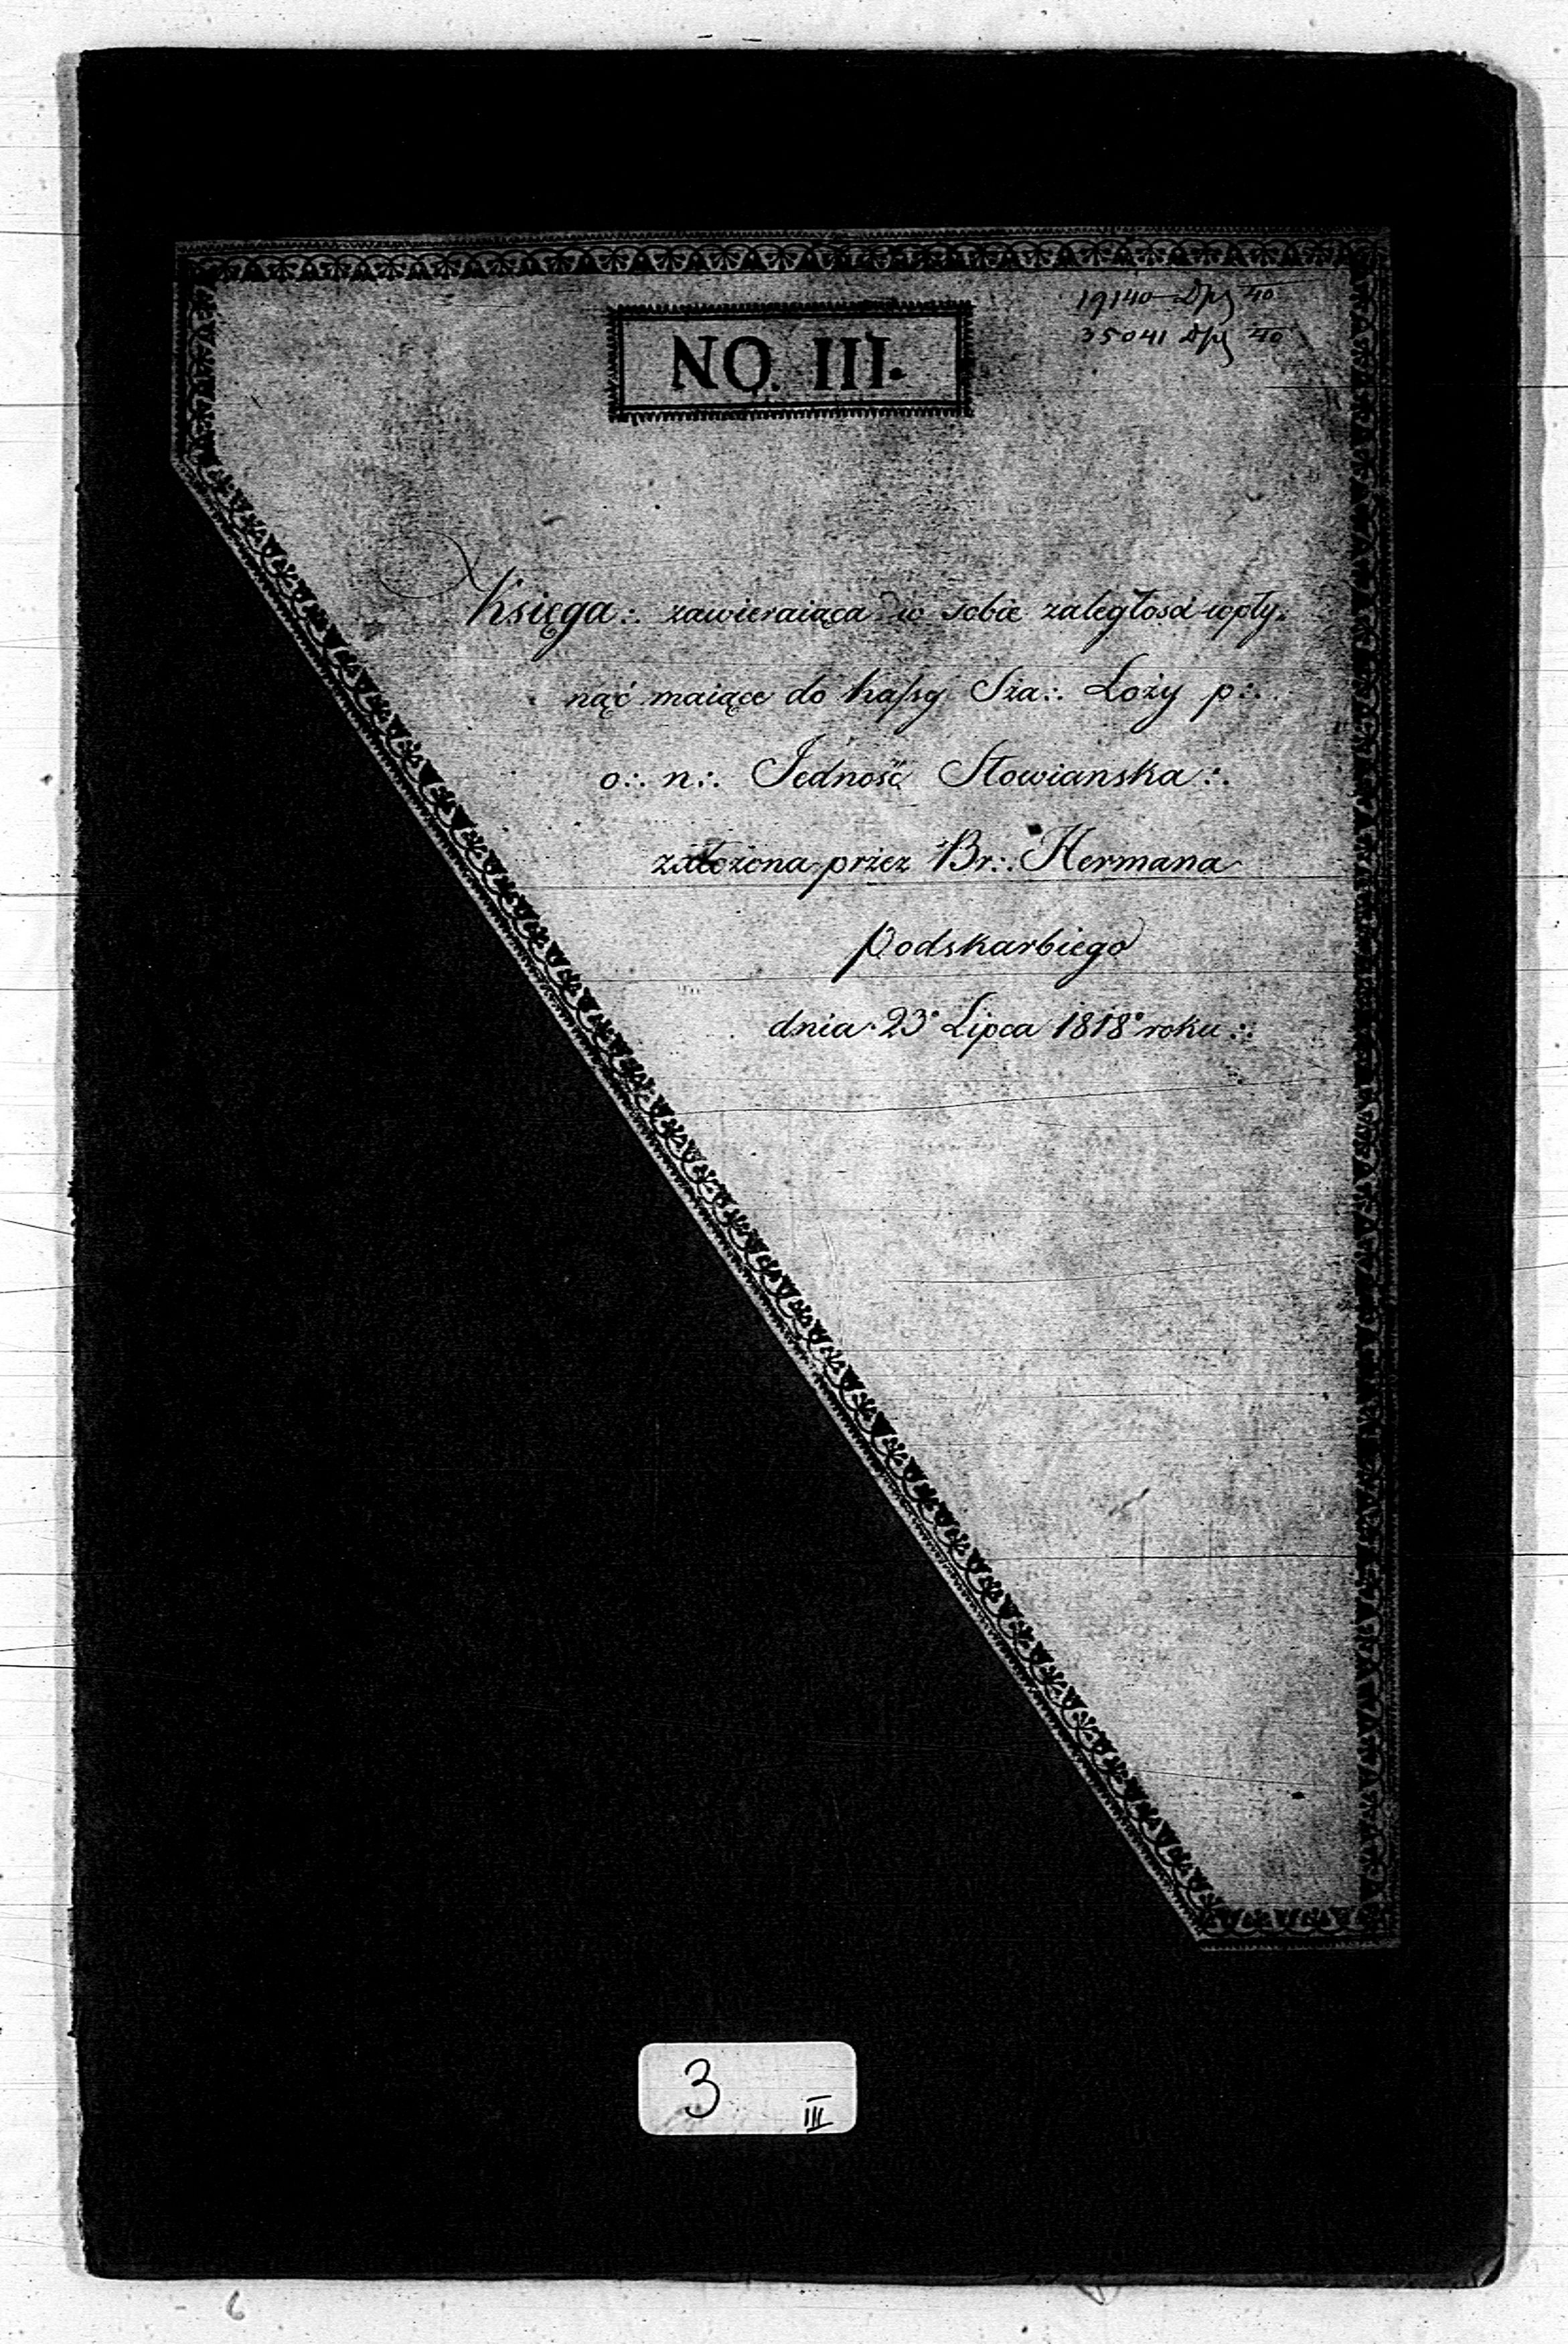 19140 Dpz 40
35041 Dpz 40
NO. III.
Księga:. zawieraiąca w sobie zaległości wpły-
nąć maiące do kaſsy Sza:. Loży p:.
o:. n:. Jedność Słowianska:.
założona przez Br:. Hermana
Podskarbiego
dnia 23° Lipca 1818° roku:.
3 III
6